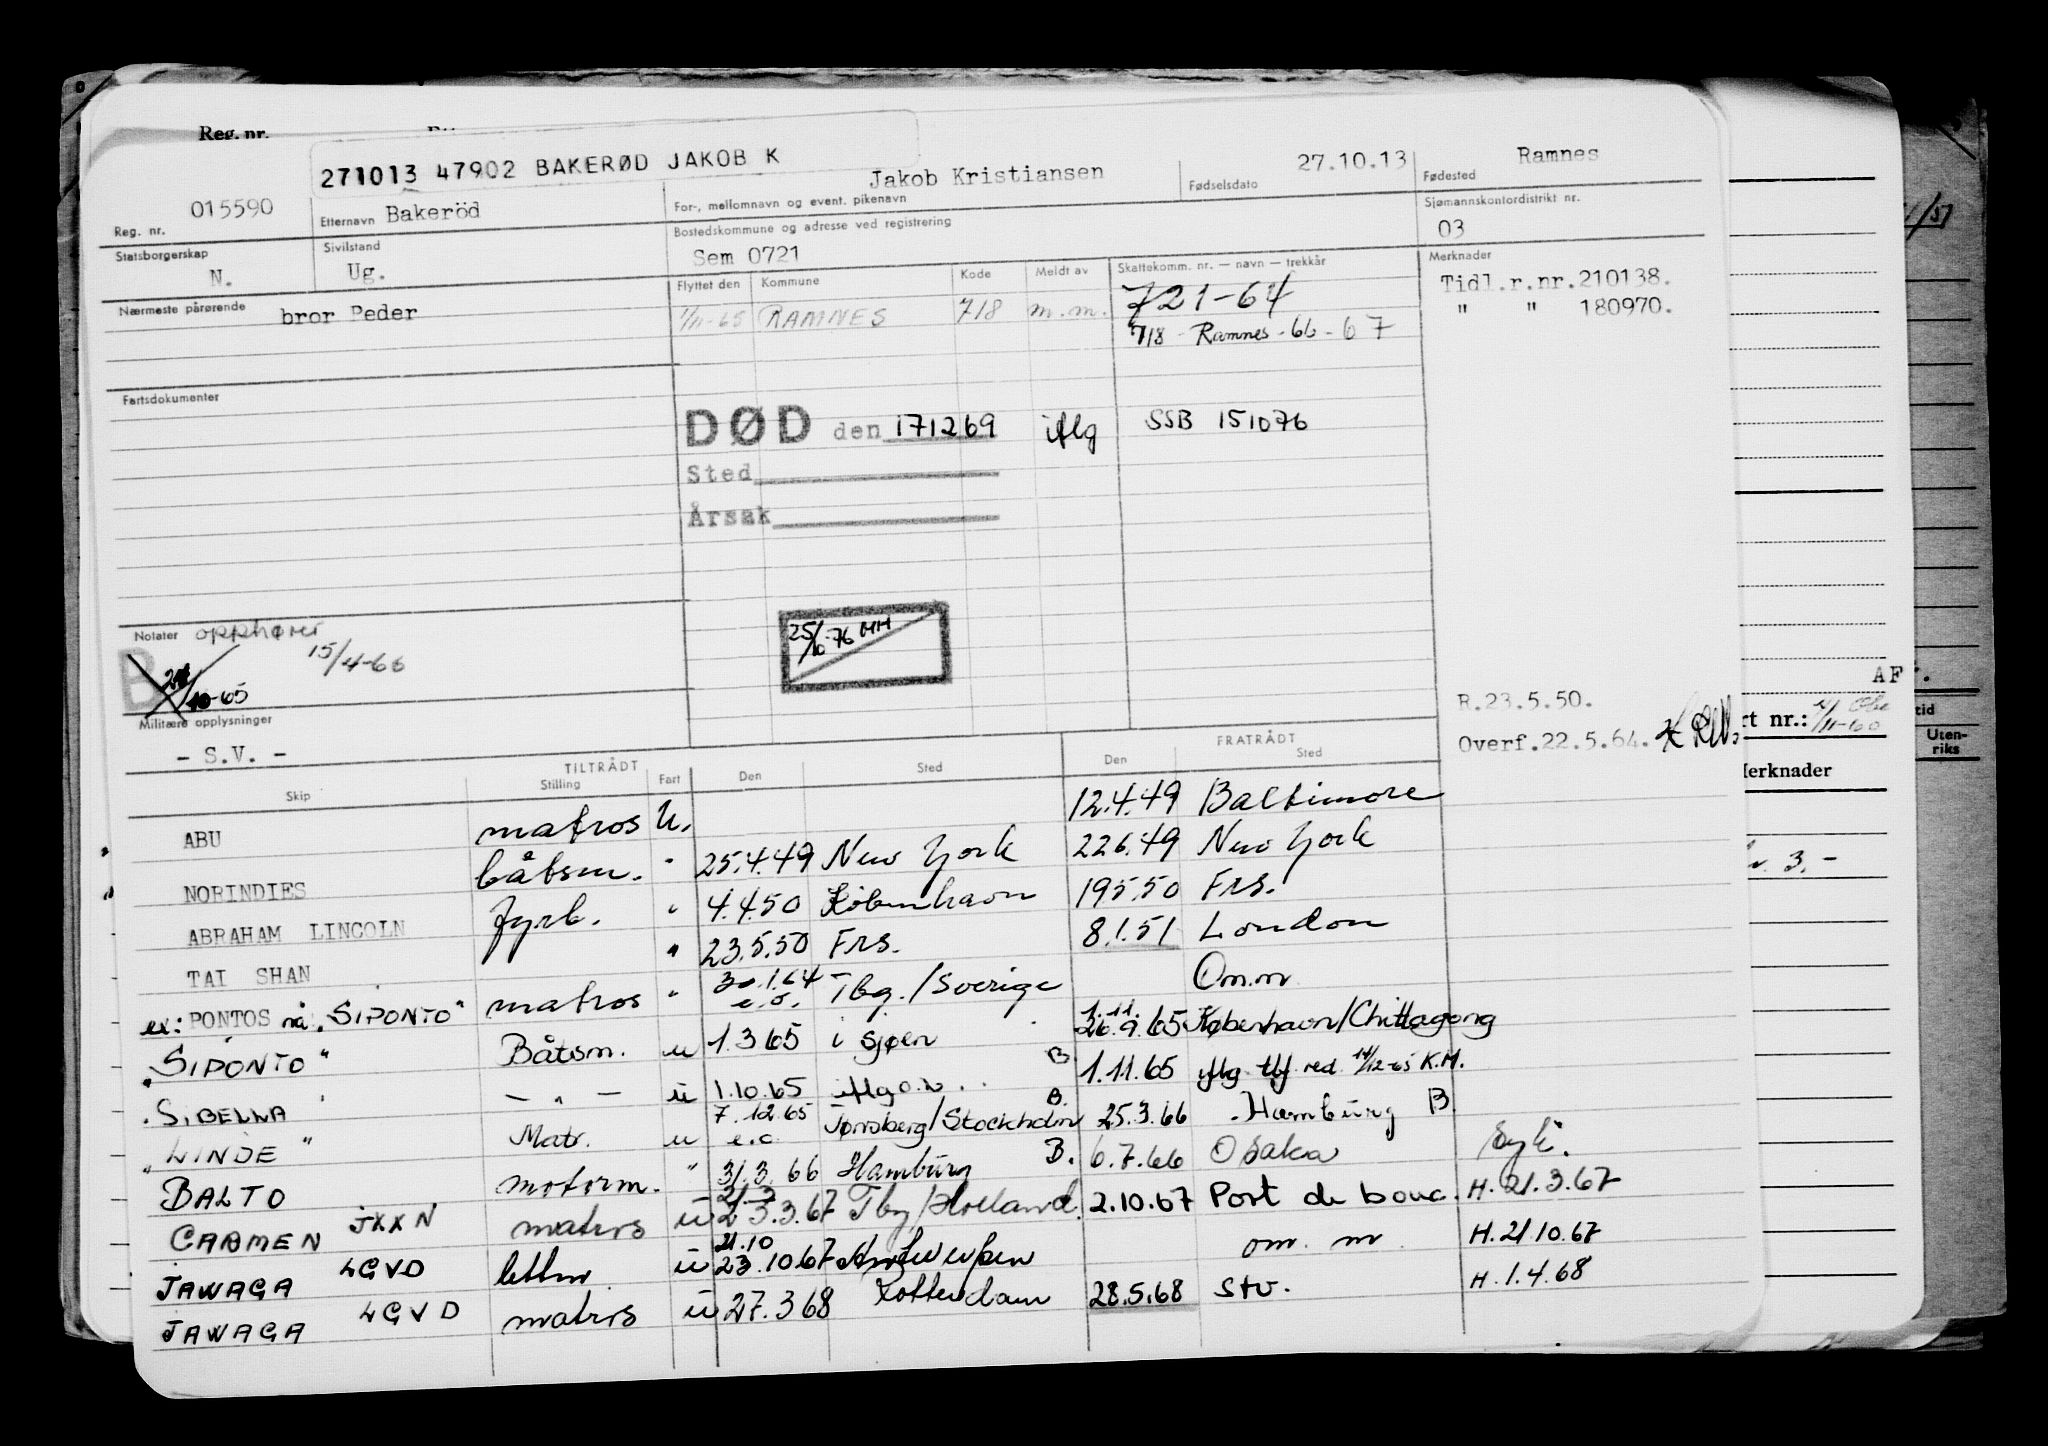 Reg. nr.
271013 47902 BAKERØD JAKOB K
015590
Reg. nr.
Etternavn Bakeröd
Jakob Kristiansen
For-, mellomnavn og event. pikenavn
Fødselsdato 27.10.13
Ramnes
Fødested
Statsborgerskap
N.
Sivilstand
Ug.
Bostedskommune og adresse ved registrering
Sem 0721
Sjømannskontordistrikt nr.
03
Nærmeste pårørende bror Peder
Flyttet den Kommune Kode Meldt av Skattekomm. nr. — navn — trekkår
1/11-65 RAMNES 718 m.m. 721-64
718 - Ramnes - 66 - 67
Merknader
Tidl.r.nr.210138.
" " 180970.
Fartsdokumenter
DØD den 171269 iflg SSB 151076
Sted
Årsak
25/10-76 HH
Notater opphører
15/4-66
B
/10-65
Militære opplysninger
- S.V. -
R.23.5.50.
Overf.22.5.64.
AF.
rt nr.:
tid
Uten-
riks
Merknader
3.-
TILTRÅDT FRATRÅDT
Skip Stilling Fart Den Sted Den Sted
ABU matros U. 12.4.49 Baltimore
NORINDIES båtsm. " 25.4.49 New York 22.6.49 New York
ABRAHAM LINCOLN fyrb. " 4.4.50 København 19.5.50 Frs.
TAI SHAN " 23.5.50 Frs. 8.1.51 London
ex: PONTOS nå "SIPONTO" matros " 30.1.64 e.o. Tbg./Sverige Om.m
"SIPONTO" Båtsm. u 1.3.65 i sjøen 1.11. 26.9.65 København/Chittagong
SIBELLA — " — u 1.10.65 iflg o.b. B 1.11.65 iflg tlf red 14/12-65 K.M.
"LINDE" Matr. u 7.12.65 e.o. Tønsberg/Stockholm B. 25.3.66 Hamburg B
BALTO motorm. " 31.3.66 Hamburg B. 6.7.66 Osaka Syk.
CARMEN JXXN matros u 21.3 23.3.67 Tbg/Holland. 2.10.67 Port de bouc. H. 21.3.67
JAWAGA LGVD lettm u 21.10 23.10.67 Antwerpen om. m. H. 21.10.67
JAWAGA LGVD matros u 27.3.68 Rotterdam 28.5.68 stv. H. 1.4.68